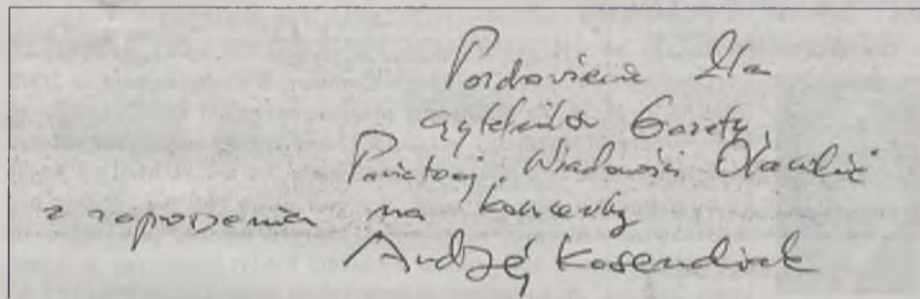 Pozdrowienia dla
czytelników Gazety
Powiatowej, Wiadomości Oławskie
z zaproszeniem na koncerty
Andrzej Kosendiak